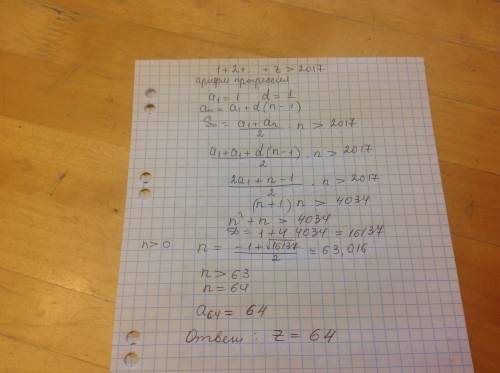 1+2+...+z > 2017
арифм прогрессия
a₁ = 1 d = 1
aₙ = a₁ + d(n-1)
Sₙ = (a₁ + aₙ)/2 · n > 2017
(a₁ + a₁ + d(n-1))/2 · n > 2017
(2a₁ + n - 1)/2 · n > 2017
(n+1) n > 4034
n² + n > 4034
D = 1 + 4·4034 = 16137
n>0 n = (-1+√16137)/2 = 63,016
n > 63
n = 64
a₆₄ = 64
Ответ: z = 64